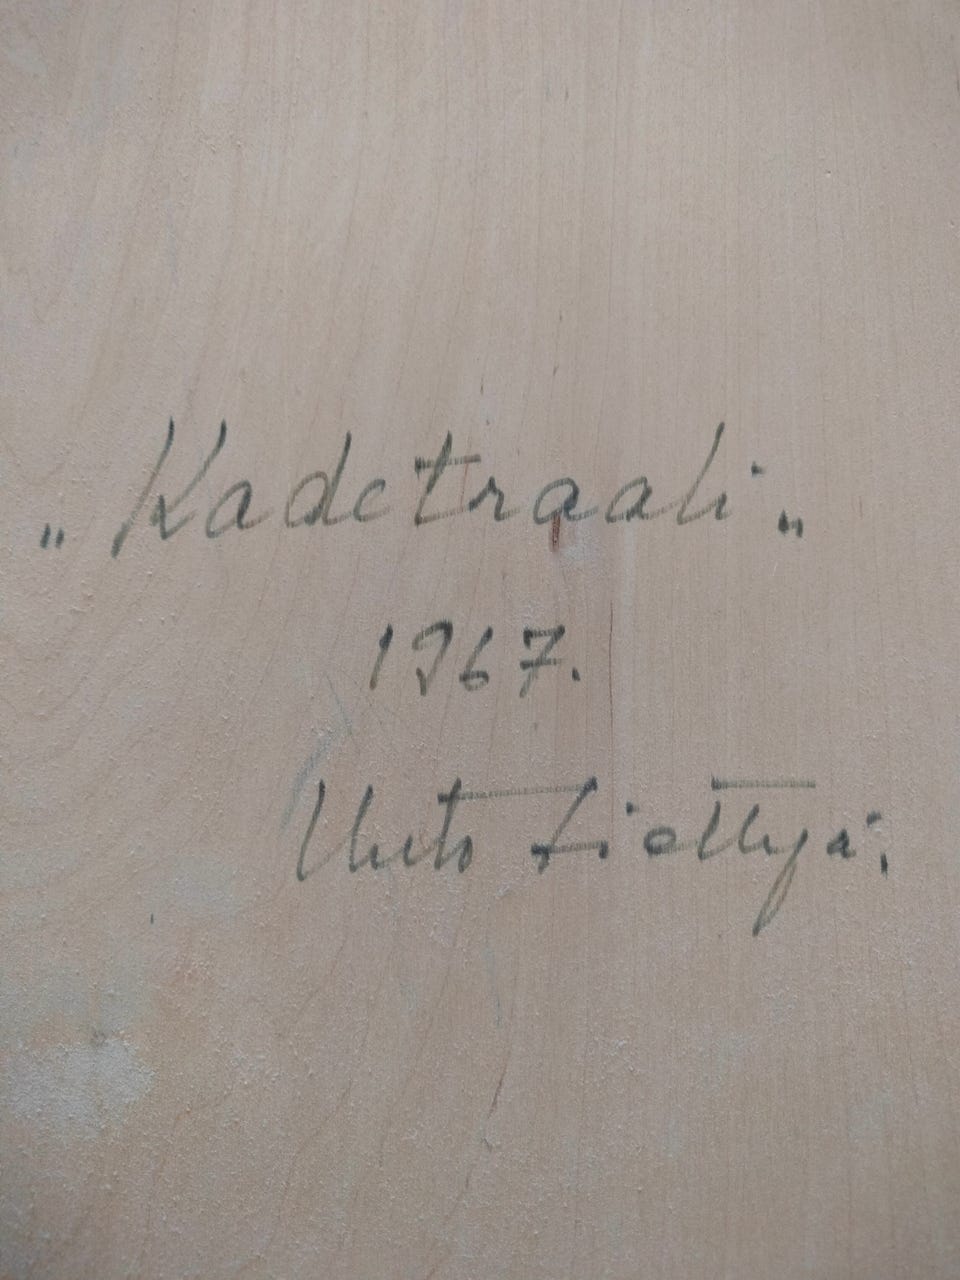 „Kadetraali„
1967.
Unto Liettyä.